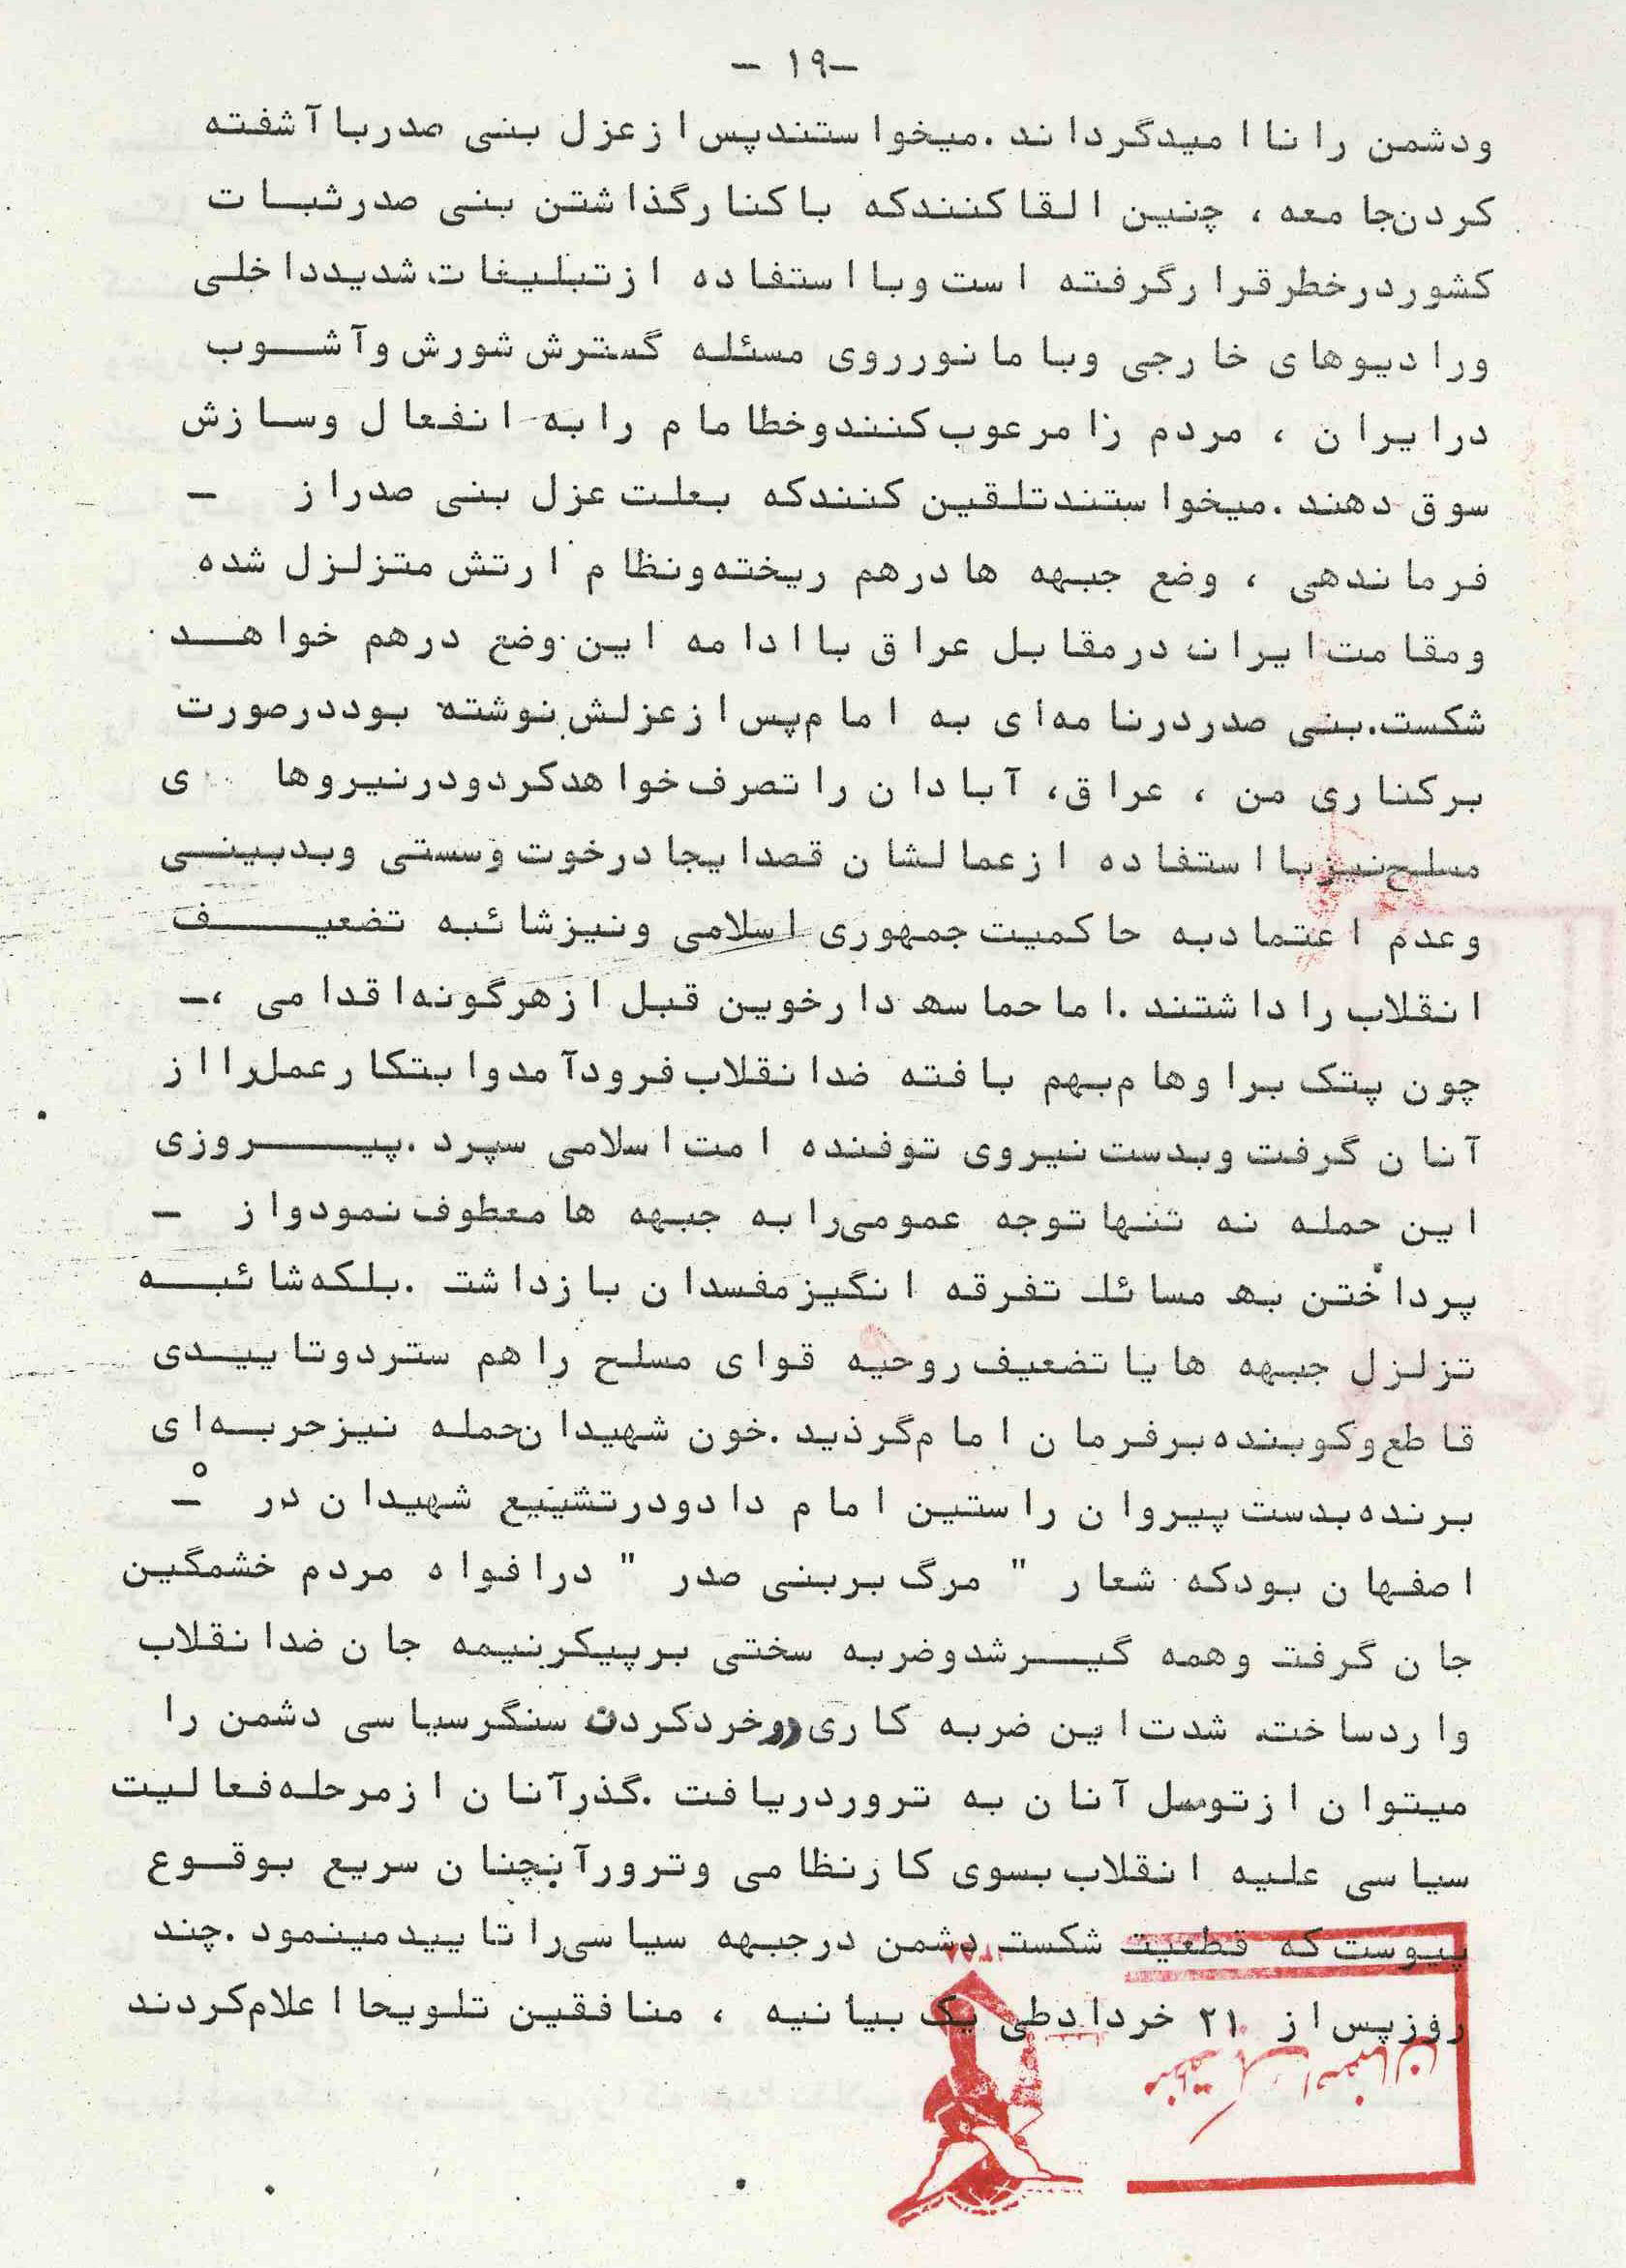 -۱۹ -
ودشمن را ناامیدگرداند .میخواستندپس ازعزل بنی صدرباآشفته
کردن‌جامعه ، چنین القاکنندکه باکنارگذاشتن بنی صدرثبات
کشوردرخطرقرارگرفته است وبااستفاده ازتبلیغات شدیدداخلی
ورادیوهای خارجی وبامانورروی مسئله گسترش شورش وآشوب
درایران ، مردم را مرعوب کنندوخط امام رابه انفعال وسازش
سوق دهند .میخواستندتلقین کنندکه بعلت عزل بنی صدراز -
فرماندهی ، وضع جبهه هادرهم ریخته‌ونظام ارتش متزلزل شده
ومقامت‌ایران درمقابل عراق باادامه این وضع درهم خواهد
شکست.بنی صدردرنامه‌ای به امام‌پس ازعزلش نوشته بوددرصورت
برکناری من ، عراق، آبادان راتصرف خواهدکردودرنیروها ی
مسلح‌نیزبااستفاده ازعمالشان قصدایجادرخوت وسستی وبدبینی
وعدم اعتمادبه حاکمیت جمهوری اسلامی ونیزشائبه تضعیف
انقلاب راداشتند .اماحماسه دارخوین قبل ازهرگونه‌اقدامی ،-
چون پتک براوهام‌بهم بافته ضدانقلاب فرودآمدوابتکارعمل‌رااز
آنان گرفت وبدست نیروی توفنده امت اسلامی سپرد .پیروزی
این حمله نه تنهاتوجه عمومی‌رابه جبهه هامعطوف نمودواز -
پرداختن به مسائل تفرقه انگیزمفسدان بازداشت .بلکه‌شائبه
تزلزل جبهه هایاتضعیف روحیه قوای مسلح راهم ستردوتاییدی
قاطع‌وکوبنده‌برفرمان امام‌گردید .خون شهیدان‌حمله نیزحربه‌ای
برنده‌بدست پیروان راستین امام دادودرتشییع شهیدان در -
اصفهان بودکه شعار " مرگ بربنی صدر " درافواه مردم خشمگین
جان گرفت وهمه گیرشدوضربه سختی برپیکرنیمه جان ضدانقلاب
واردساخت. شدت‌این ضربه کاری ورخردکردن سنگرسیاسی دشمن را
میتوان ازتوسل آنان به تروردریافت .گذرآنان ازمرحله‌فعالیت
سیاسی علیه انقلاب بسوی کارنظامی وترورآنچنان سریع بوقوع
پیوست‌که قطعیت شکست دشمن درجبهه سیاسی‌راتاییدمینمود .چند
روزپس‌از ۲۱ خردادطی یک بیانیه ، منافقین تلویحااعلام‌کردند